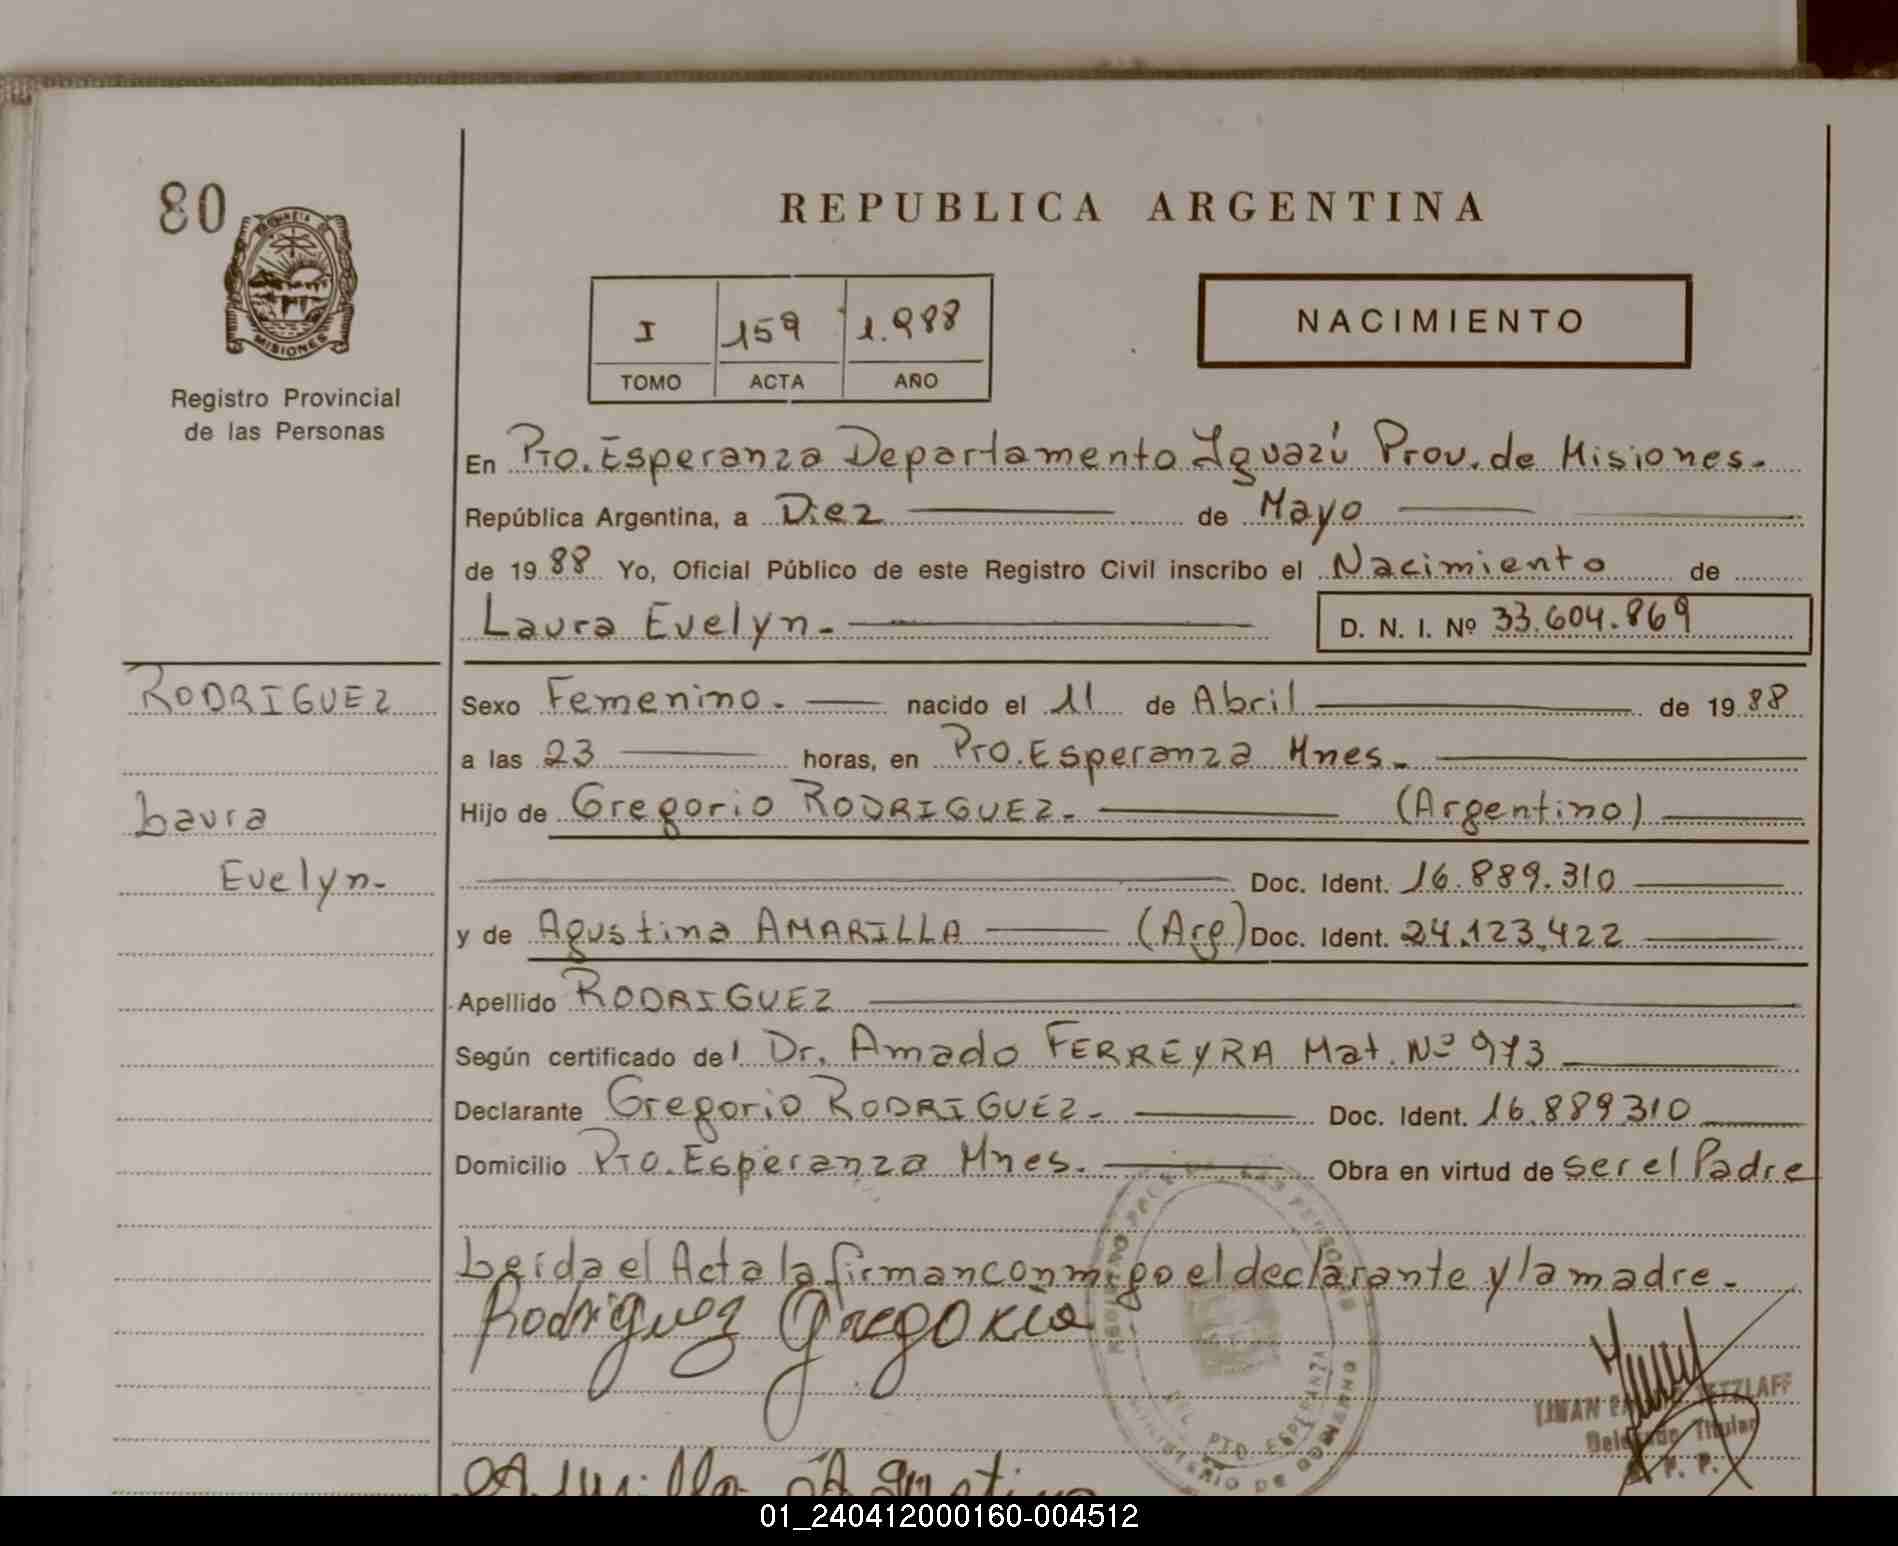 80
REPUBLICA ARGENTINA
PROVINCIA
MISIONES
Registro Provincial
de las Personas
I 159 1.988
TOMO ACTA AÑO
NACIMIENTO
En Pto. Esperanza Departamento Iguazú Prov. de Misiones.
República Argentina, a Diez de Mayo
de 1988 Yo, Oficial Público de este Registro Civil inscribo el Nacimiento de
Laura Evelyn. D. N. I. Nº 33.604.869
RODRIGUEZ
Laura
Evelyn.
Sexo Femenino. nacido el 11 de Abril de 1988
a las 23 horas, en Pto. Esperanza Mnes.
Hijo de Gregorio RODRIGUEZ. (Argentino)
Doc. Ident. 16.889.310
y de Agustina AMARILLA (Arg) Doc. Ident. 24.123.422
Apellido RODRIGUEZ
Según certificado del Dr. Amado FERREYRA Mat. Nº 973
Declarante Gregorio RODRIGUEZ. Doc. Ident. 16.889310
Domicilio Pto. Esperanza Mnes. Obra en virtud de ser el Padre
Leída el Acta la firman conmigo el declarante y la madre.
Rodriguez Gregorio
TETZLAFF
Delegado Titular
R. P. P.
PTO. ESPERANZA
MINISTERIO DE GOBIERNO
01_240412000160-004512